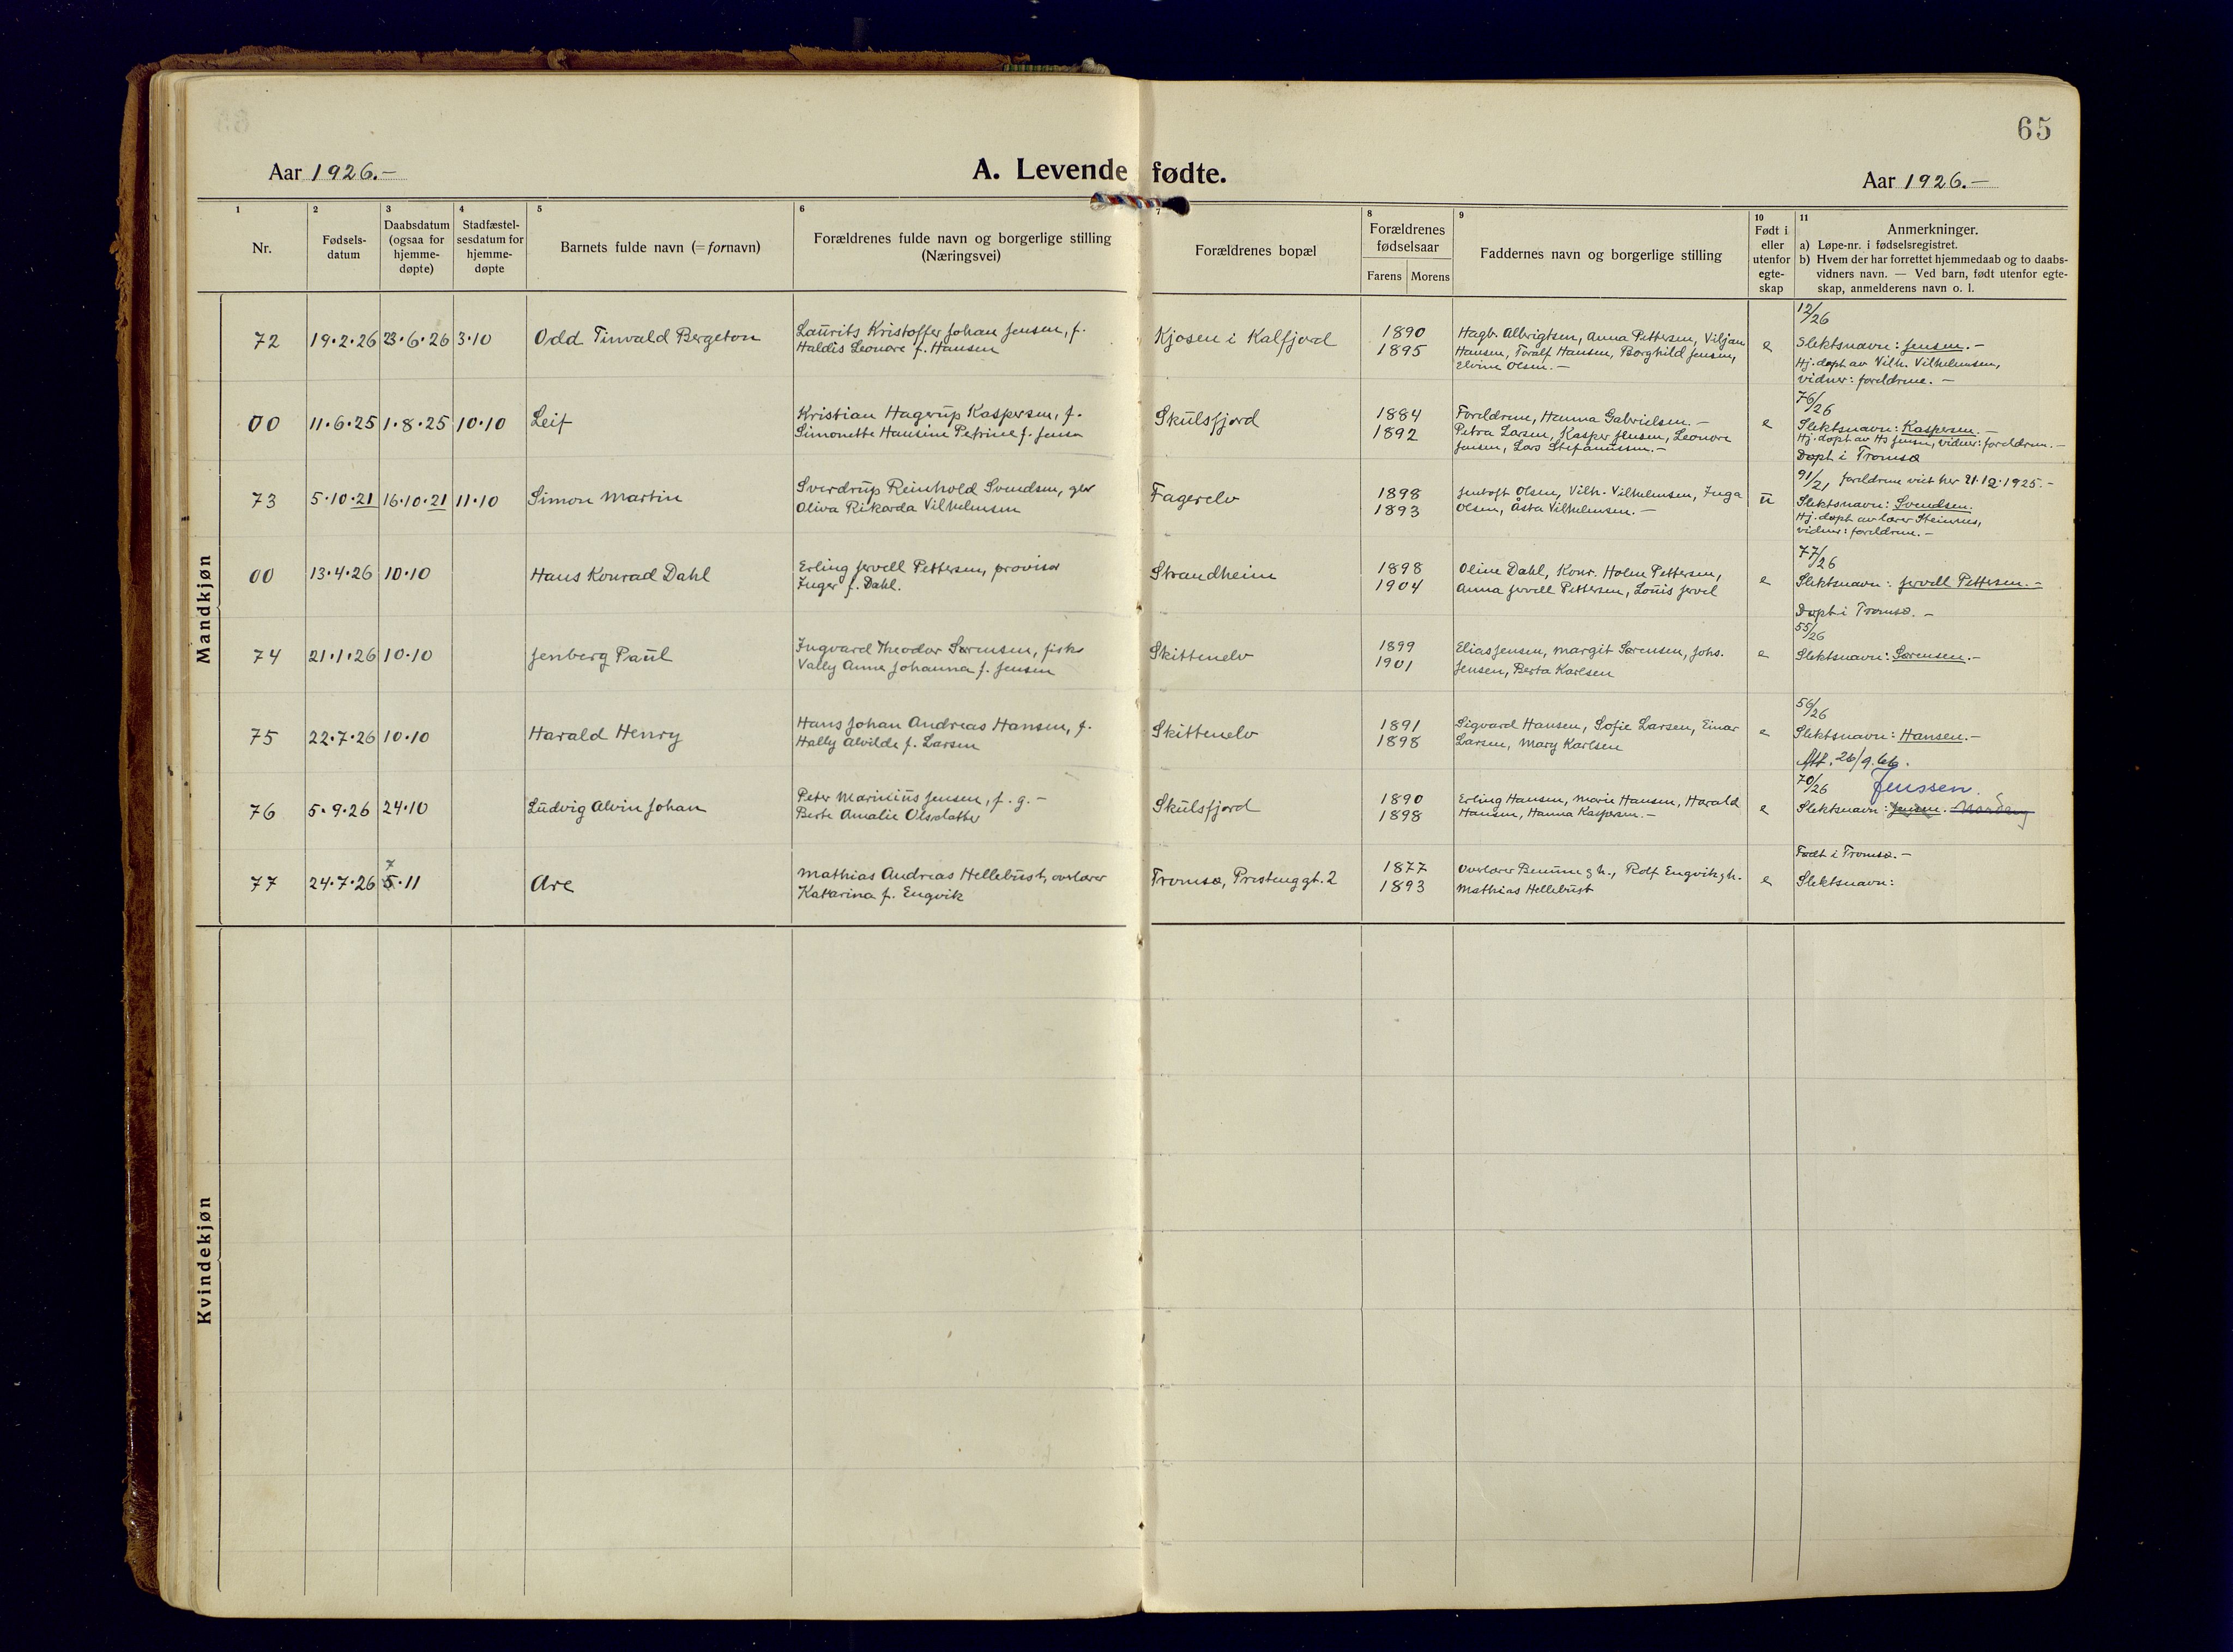 65
Aar 1926.–
A. Levende fødte.
Aar 1926.–
1 2 3 4 5 6 7 8 9 10 11
Nr.
Fødsels-
datum
Daabsdatum
(ogsaa for
hjemme-
døpte)
Stadfæstel-
sesdatum for
hjemme-
døpte
Barnets fulde navn (= fornavn)
Forældrenes fulde navn og borgerlige stilling
(Næringsvei)
Forældrenes bopæl
Forældrenes
fødselsaar
Farens Morens
Faddernes navn og borgerlige stilling
Født i
eller
utenfor
egte-
skap
Anmerkninger.
a) Løpe-nr. i fødselsregistret.
b) Hvem der har forrettet hjemmedaab og to daabs-
vidners navn. — Ved barn, født utenfor egte-
skap, anmelderens navn o. l.
Mandkjøn
72 19.2.26 23.6.26 3.10 Odd Tinvald Bergeton
Laurits Kristoffer Johan Jensen, f.
Haldis Leonore f. Hansen
Kjosen i Kalfjord
1890
1895
Hagb. Albrigtsen, Anna Pettersen, Viljan
Hansen, Toralf Hansen, Borghild Jensen,
Elvine Olsen.–
e
12/26
Slektsnavn: Jensen.–
Hj. døpt av Vilh. Vilhelmsen,
vidner: foreldrene.–
00 11.6.25 1.8.25 10.10 Leif
Kristian Hagerup Kaspersen, f.
Simonette Hansine Petrine f. Jensen
Skulsfjord
1884
1892
Foreldrene, Hanna Gabrielsen.–
Petra Larsen, Kasper Jensen, Leonore
Jensen, Lars Stefanussen.–
e
76/26
Slektsnavn: Kaspersen.–
Hj. døpt av Hs Jensen, vidner: foreldrene.–
Døpt i Tromsø
73 5.10.21 16.10.21 11.10 Simon Martin
Sverdrup Reinhold Svendsen, gbr
Oliva Rikarda Vilhelmsen
Fagerelv
1898
1893
Jentoft Olsen, Vilh. Vilhelmsen, Inga
Olsen, Åsta Vilhelmsen.–
u
91/21, foreldrene viet her 21.12.1925.–
Slektsnavn: Svendsen.
Hj. døpt av lærer Steinnes,
vidner: foreldrene.–
00 13.4.26 10.10 Hans Konrad Dahl
Erling Jervell Pettersen, provisor
Inger f. Dahl.
Strandheim
1898
1904
Oline Dahl, Konr. Holm Pettersen,
Anna Jervell Pettersen, Louis Jervel
e
77/26
Slektsnavn: Jervell Pettersen.–
Døpt i Tromsø.–
74 21.1.26 10.10 Jenberg Paul
Ingvard Theodor Sørensen, fisker
Vally Anna Johanna f. Jensen
Skittenelv
1899
1901
Elias Jensen, Margit Sørensen, Johs.
Jensen, Berta Karlsen
e
55/26
Slektsnavn: Sørensen.–
75 22.7.26 10.10 Harald Henry
Hans Johan Andreas Hansen, f.
Hally Alvilde f. Larsen
Skittenelv
1891
1898
Sigvard Hansen, Sofie Larsen, Einar
Larsen, Mary Karlsen
e
56/26
Slektsnavn: Hansen.–
Att. 26/9.66.
76 5.9.26 24.10 Ludvig Alvin Johan
Peter Marinius Jensen, f. g.–
Berte Amalie Olsdatter
Skulsfjord
1890
1898
Erling Hansen, Marie Hansen, Harald
Hansen, Hanna Kaspersen.–
e
70/26 Jenssen.
Slektsnavn: Jensen. Nordeng
77 24.7.26 7 5.11 Are
Mathias Andreas Hellebust, overlærer
Katarina f. Engvik
Tromsø, Prestenggt. 2
1877
1893
Overlærer Benum g h., Rolf Engvik gh.
Mathias Hellebust
e
Født i Tromsø.–
Slektsnavn:
Kvindekjøn